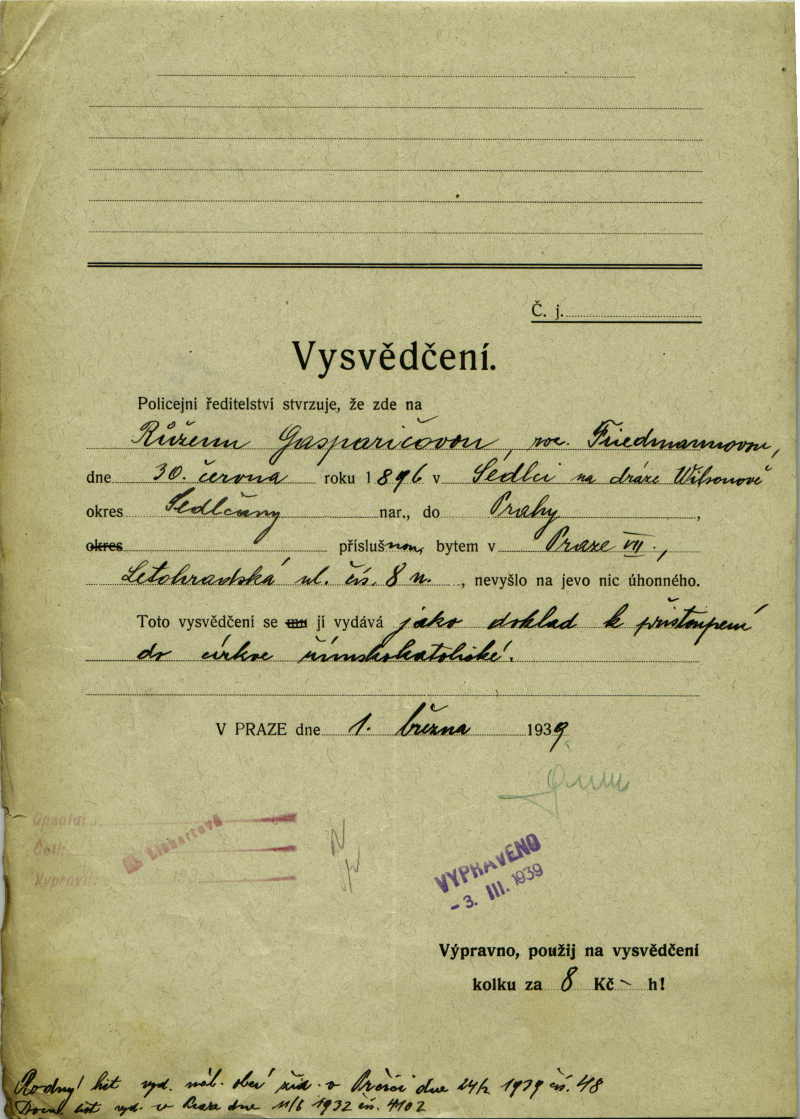 Č. j.
Vysvědčení.
Policejní ředitelství stvrzuje, že zde na
Růženu Gasparičovou, roz. Friedmannovou,
dne 30. června roku 1896 v Sedlci na dráze Wilsonově
okres Sedlčany nar., do Prahy,
okres příslušnou, bytem v Praze VII.,
Letohradská ul. čís. 8 n., nevyšlo na jevo nic úhonného.
Toto vysvědčení se mu jí vydává jako doklad k přistoupení
do církve římskokatolické.
V PRAZE dne 1. března 1939
Opsala:
Četl:
Vypravil: 193
Liebartová
VYPRAVENO
-3. III. 1939
Výpravno, použij na vysvědčení
kolku za 8 Kč - h!
Rodný list vyd. náb. obcí žid. v dne 24/2 1939 čís. 48
Domov. list vyd. v Praze dne 11/6 1932 čís. 4102